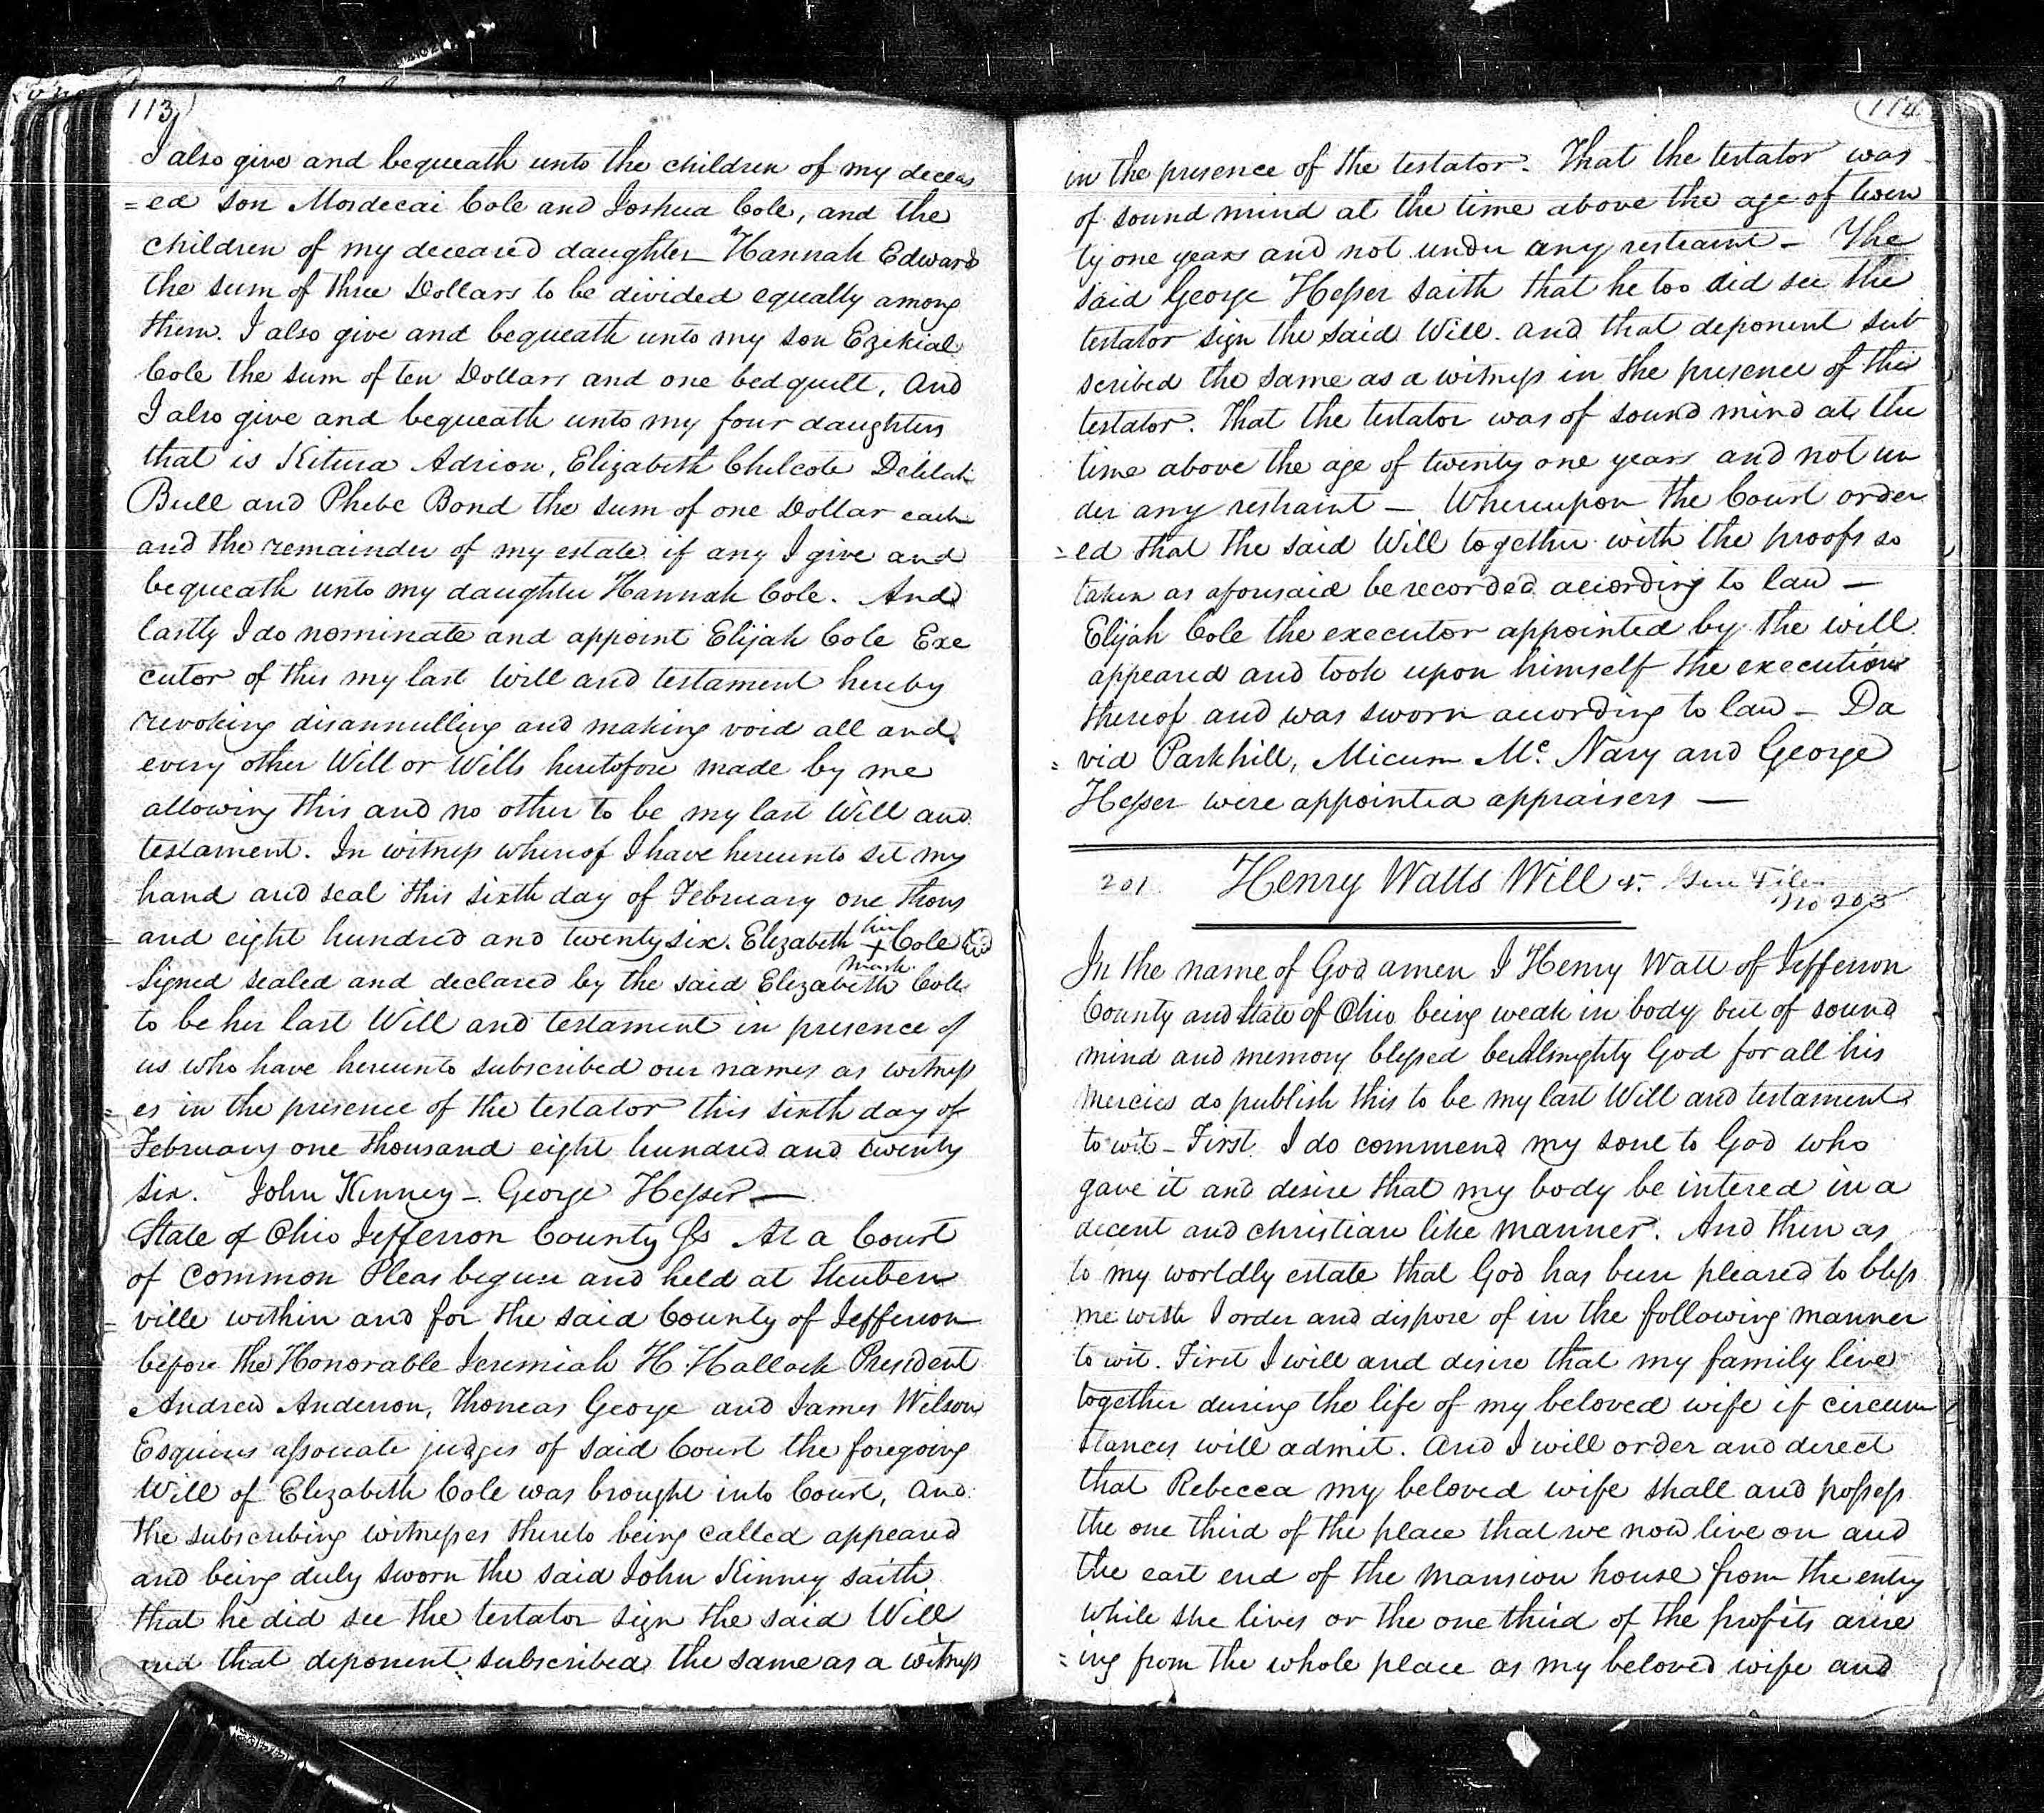 113
I also give and bequeath unto the children of my deceas
=ed son Mordecai Cole and Joshua Cole, and the
children of my deceased daughter Hannah Edwards
the sum of three Dollars to be divided equally among
them. I also give and bequeath unto my son Ezekial
Cole the sum of ten Dollars and one bed quilt, And
I also give and bequeath unto my four daughters
that is Kitura Adrion, Elizabeth Chelcote Delilah
Bull and Phebe Bond the sum of one Dollar each
and the remainder of my estate if any I give and
bequeath unto my daughter Hannah Cole. And
lastly I do nominate and appoint Elijah Cole Exe
cutor of this my last will and testament hereby
revoking disannulling and making void all and
every other Will or Wills heretofore made by me
allowing this and no other to be my last Will and
testament. In witness whereof I have hereunto set my
hand and seal this sixth day of February one thous
and eight hundred and twenty six. Elizabeth her + mark Cole
Signed sealed and declared by the said Elizabeth Cole
to be her last Will and testament in presence of
us who have hereunto subscribed our names as witness
=es in the presence of the testator this sixth day of
February one thousand eight hundred and twenty
six. John Kinney - George Hesser —
State of Ohio Jefferson County Ss At a Court
of Common Pleas begun and held at Steuben
=ville within and for the said County of Jefferson
before the Honorable Jeremiah H. Hallock President
Andrew Anderson, Thomas George and James Wilson
Esquires associate judges of said Court the foregoing
Will of Elizabeth Cole was brought into Court, and
the subscribing witnesses thereto being called appeared
and being duly sworn the said John Kinney saith
that he did see the testator sign the said Will
and that deponent subscribed the same as a witness
114
in the presence of the testator. That the testator was
of sound mind at the time above the age of twen
ty one years and not under any restraint - The
said George Hesser saith that he too did see the
testator sign the said Will and that deponent sub
scribed the same as a witness in the presence of the
testator. That the testator was of sound mind at the
time above the age of twenty one years and not un
der any restraint - Whereupon the Court order
=ed that the said Will together with the proofs so
taken as aforesaid be recorded according to law —
Elijah Cole the executor appointed by the will
appeared and took upon himself the execution
thereof and was sworn according to law - Da
=vid Parkhill, Micum Mc. Nary and George
Hesser were appointed appraisers —
201 Henry Watts Will See File
No 203
In the name of God amen I Henry Watt of Jefferson
County and State of Ohio being weak in body but of sound
mind and memory blessed be Almighty God for all his
mercies do publish this to be my last Will and testament
to wit - First I do commend my soul to God who
gave it and desire that my body be intered in a
decent and christian like manner. And then as
to my worldly estate that God has been pleased to bless
me with I order and dispose of in the following manner
to wit. First I will and desire that my family live
together during the life of my beloved wife if circum
stances will admit. And I will order and direct
that Rebecca my beloved wife shall and possess
the one third of the place that we now live on and
the east end of the mansion house from the entry
while she lives or the one third of the profits aris
=ing from the whole place as my beloved wife and